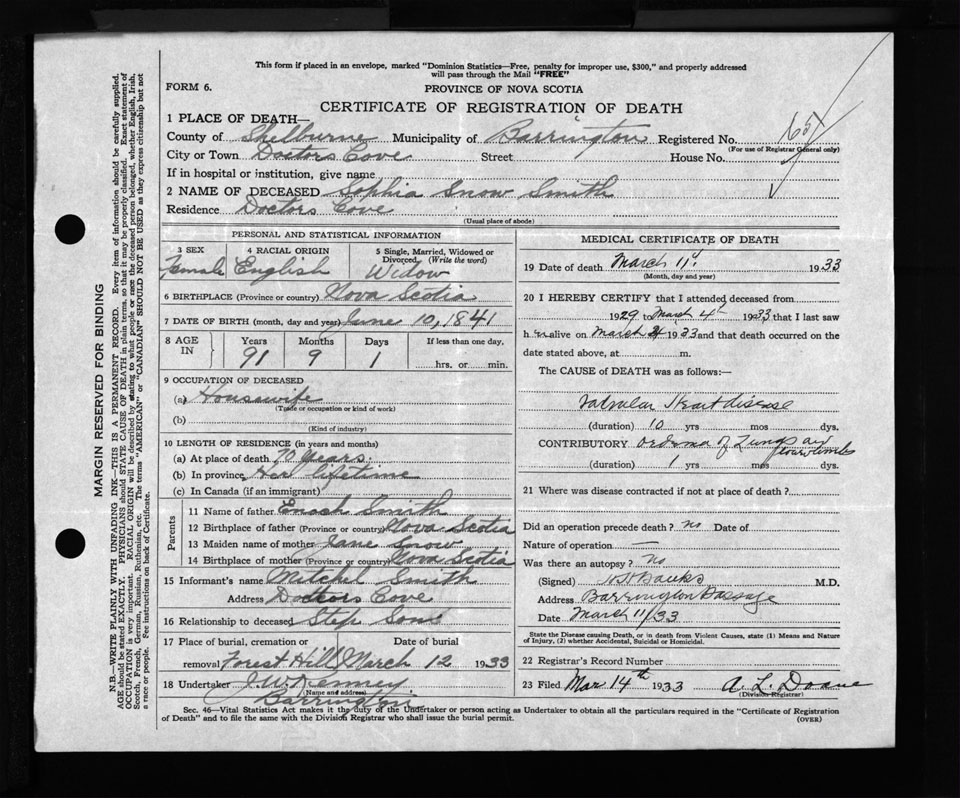 This form if placed in an envelope, marked "Dominion Statistics—Free, penalty for improper use, $300," and properly addressed
will pass through the Mail "FREE"
FORM 6.
PROVINCE OF NOVA SCOTIA
CERTIFICATE OF REGISTRATION OF DEATH
1 PLACE OF DEATH—
County of Shelburne Municipality of Barrington Registered No.
(For use of Registrar General only)
City or Town Doctors Cove Street House No.
If in hospital or institution, give name
2 NAME OF DECEASED Sophia Snow Smith
Residence Doctors Cove
(Usual place of abode)
PERSONAL AND STATISTICAL INFORMATION
3 SEX Female
4 RACIAL ORIGIN English
5 Single, Married, Widowed or Divorced. (Write the word) Widow
6 BIRTHPLACE (Province or country) Nova Scotia
7 DATE OF BIRTH (month, day and year) June 10, 1841
8 AGE IN Years Months Days If less than one day,
91 9 1 hrs. or min.
9 OCCUPATION OF DECEASED
(a) Housewife
(Trade or occupation or kind of work)
(b)
(Kind of industry)
10 LENGTH OF RESIDENCE (in years and months)
(a) At place of death 70 years.
(b) In province Her lifetime
(c) In Canada (if an immigrant)
Parents
11 Name of father Enoch Smith
12 Birthplace of father (Province or country) Nova Scotia
13 Maiden name of mother Jane Snow
14 Birthplace of mother (Province or country) Nova Scotia
15 Informant's name Mitchel Smith
Address Doctors Cove
16 Relationship to deceased Step Son
17 Place of burial, cremation or Date of burial
removal Forest Hill March 12 1933
18 Undertaker J. W. Kenney
(Name and address)
Barrington
MEDICAL CERTIFICATE OF DEATH
19 Date of death March 11 1933
(Month, day and year)
20 I HEREBY CERTIFY that I attended deceased from
1929 to March 4th 1933 that I last saw
her alive on March 4 1933 and that death occurred on the
date stated above, at m.
The CAUSE of DEATH was as follows:
Valvular Heart disease
(duration) 10 yrs mos dys.
CONTRIBUTORY Oedema of Lungs
(duration) 1 yrs mos dys.
21 Where was disease contracted if not at place of death?
Did an operation precede death? No Date of
Nature of operation —
Was there an autopsy? No
(Signed) Banks M.D.
Address Barrington Passage
Date March 11/33
State the Disease causing Death, or in death from Violent Causes, state (1) Means and Nature
of Injury, (2) whether Accidental, Suicidal or Homicidal.
22 Registrar's Record Number
23 Filed Mar 14th 1933 A. L. Doane
(Division Registrar)
Sec. 46—Vital Statistics Act makes it the duty of the Undertaker or person acting as Undertaker to obtain all the particulars required in the "Certificate of Registration
of Death" and to file the same with the Division Registrar who shall issue the burial permit.
(OVER)
MARGIN RESERVED FOR BINDING
N.B.—WRITE PLAINLY WITH UNFADING INK—THIS IS A PERMANENT RECORD. Every item of information should be carefully supplied.
AGE should be stated EXACTLY. PHYSICIANS should STATE CAUSE OF DEATH in plain terms, so that it may be properly classified. Exact statement of
OCCUPATION is very important. RACIAL ORIGIN will be described by stating to what people or race the deceased person belonged, whether English, Irish,
Scotch, French, German, Russian, Ruthenian, etc. The terms "AMERICAN" or "CANADIAN" SHOULD NOT BE USED as they express citizenship but not
a race or people. See instructions on back of Certificate.